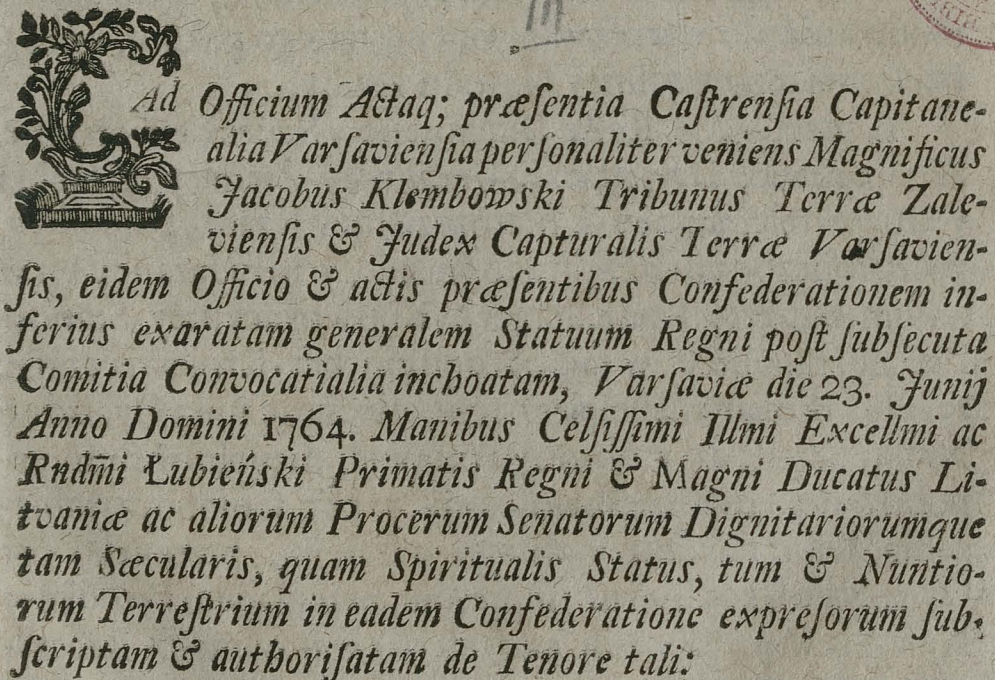 Ad Officium Actaq; præſentia Caſtrenſia Capitane-
alia Varſavienſia perſonaliter veniens Magnificus
Jacobus Klembowski Tribunus Terræ Zale-
vienſis & Judex Capturalis Terræ Varſavien-
ſis, eidem Officio & actis præſentibus Confederationem in-
ferius exaratam generalem Statuum Regni poſt ſubſecuta
Comitia Convocatialia inchoatam, Varſaviæ die 23. Junij
Anno Domini 1764. Manibus Celſiſſimi Illmi Excellmi ac
Rndm̄i Łubieński Primatis Regni & Magni Ducatus Li-
tvaniæ ac aliorum Procerum Senatorum Dignitariorumque
tam Sæcularis, quam Spiritualis Status, tum & Nuntio-
rum Terreſtrium in eadem Confederatione expreſorum ſub-
ſcriptam & authoriſatam de Tenore tali: